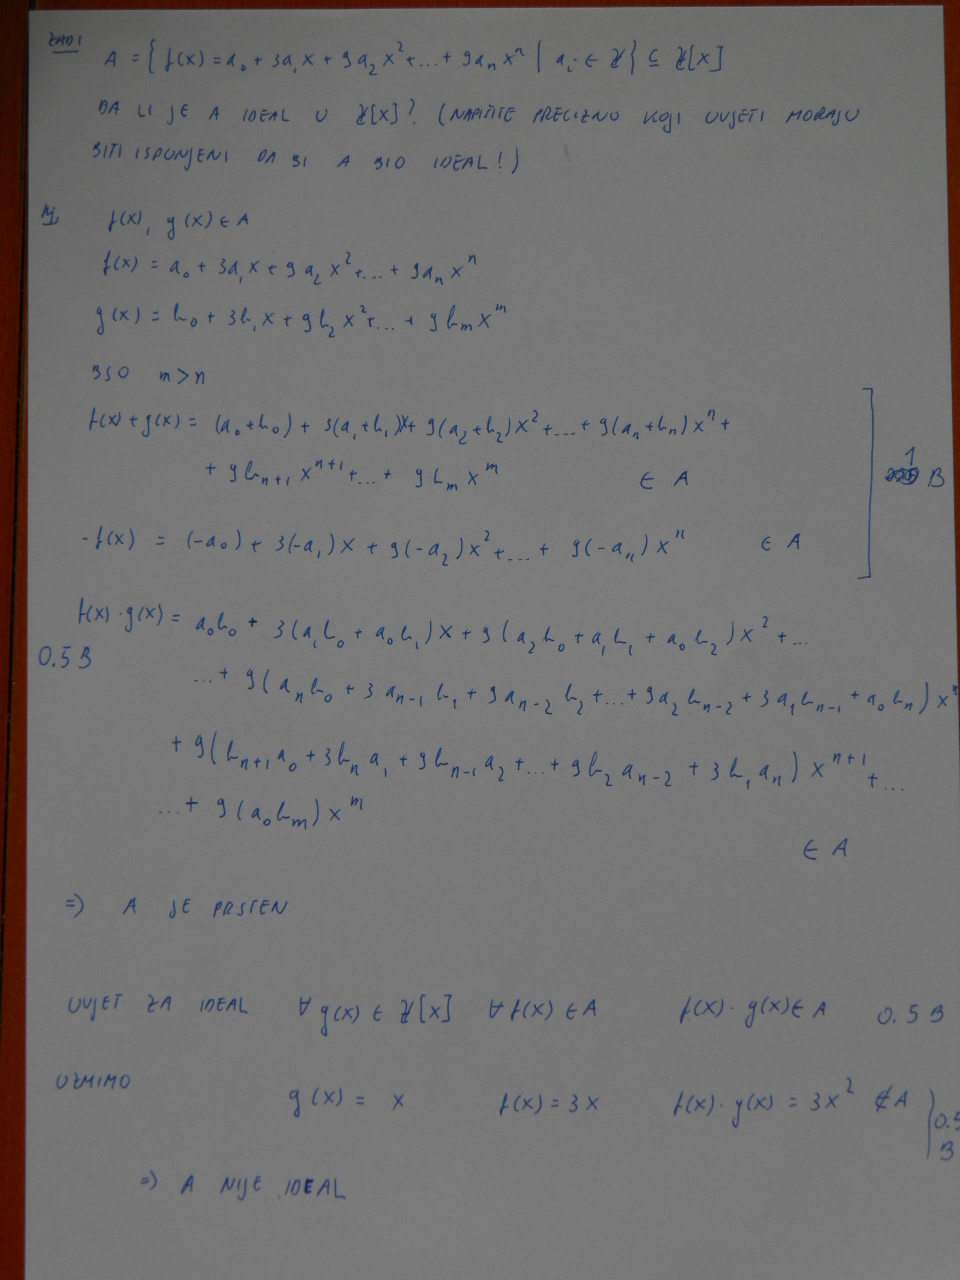 ZAD 1
A = { f(x) = a₀ + 3a₁x + 9a₂x² + ... + 9aₙxⁿ | aᵢ ∈ ℤ } ⊆ ℤ[x]
DA LI JE A IDEAL U ℤ[x]? (NAPIŠITE PRECIZNO KOJI UVJETI MORAJU
BITI ISPUNJENI DA BI A BIO IDEAL!)
Rj. f(x), g(x) ∈ A
f(x) = a₀ + 3a₁x + 9a₂x² + ... + 9aₙxⁿ
g(x) = b₀ + 3b₁x + 9b₂x² + ... + 9bₘxᵐ
BSO m > n
f(x) + g(x) = (a₀+b₀) + 3(a₁+b₁)x + 9(a₂+b₂)x² + ... + 9(aₙ+bₙ)xⁿ +
+ 9bₙ₊₁xⁿ⁺¹ + ... + 9bₘxᵐ ∈ A
1 B
-f(x) = (-a₀) + 3(-a₁)x + 9(-a₂)x² + ... + 9(-aₙ)xⁿ ∈ A
f(x)·g(x) = a₀b₀ + 3(a₁b₀ + a₀b₁)x + 9(a₂b₀ + a₁b₁ + a₀b₂)x² + ...
0.5 B
... + 9(aₙb₀ + 3aₙ₋₁b₁ + 9aₙ₋₂b₂ + ... + 9a₂bₙ₋₂ + 3a₁bₙ₋₁ + a₀bₙ)xⁿ
+ 9(bₙ₊₁a₀ + 3bₙa₁ + 9bₙ₋₁a₂ + ... + 9b₂aₙ₋₂ + 3b₁aₙ)xⁿ⁺¹ + ...
... + 9(a₀bₘ)xᵐ
∈ A
=> A JE PRSTEN
UVJET ZA IDEAL ∀g(x) ∈ ℤ[x] ∀f(x) ∈ A f(x)·g(x) ∈ A 0.5 B
UZMIMO
g(x) = x f(x) = 3x f(x)·g(x) = 3x² ∉ A 0.5 B
=> A NIJE IDEAL